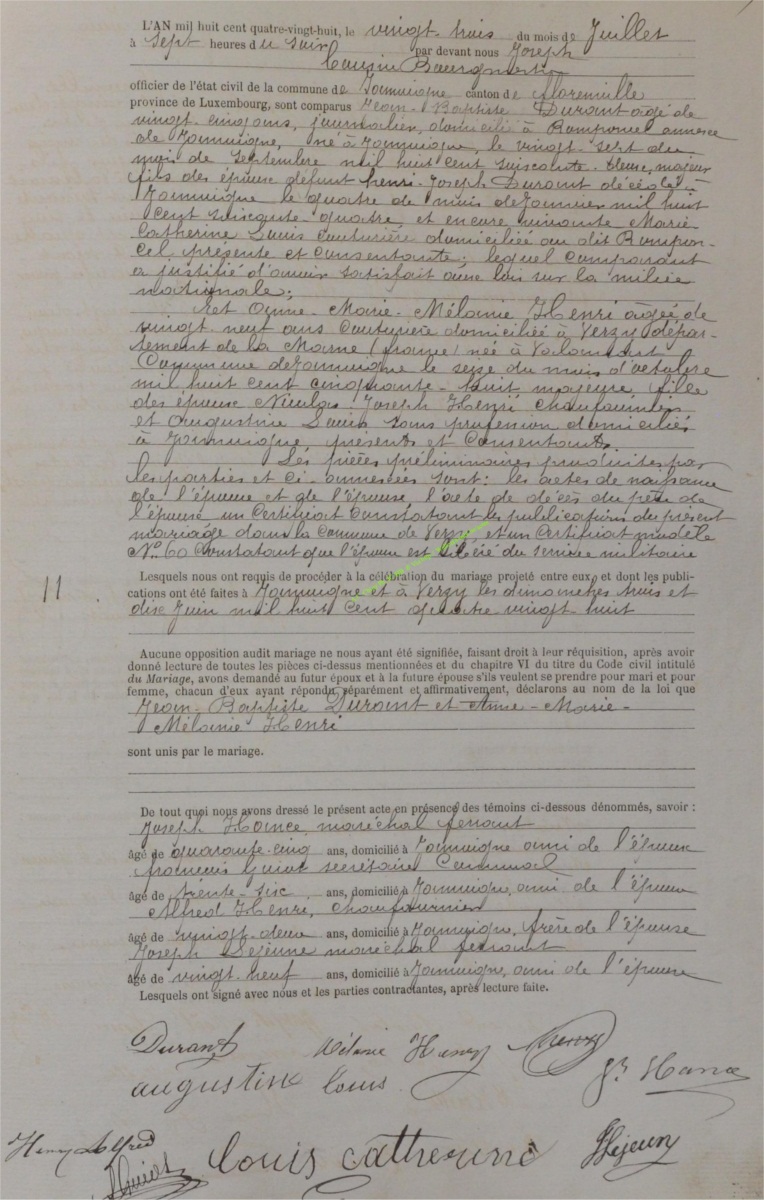 L'AN mil huit cent quatre-vingt-huit, le vingt-trois du mois de Juillet
à sept heures du soir par devant nous Joseph
officier de l'état civil de la commune de Jamoigne canton de Florenville
province de Luxembourg, sont comparus Jean-Baptiste Durant âgé de
vingt-cinq ans, journalier, domicilié à annexe
de Jamoigne, né à Jamoigne, le vingt-sept du
mois de Septembre mil huit cent soixante-deux, majeur
fils des époux défunt henri-Joseph Durant décédé à
Jamoigne le quatre de mois de Janvier mil huit
cent soixante-quatre et encore vivante Marie
Catherine Louis couturière domiciliée au dit
présente et consentante; lequel comparant
a justifié d'avoir satisfait aux lois sur la milice
nationale;
Et Anne-Marie-Mélanie Henri âgée de
vingt neuf ans couturière domiciliée à Verzy dépar-
tement de la Marne (france) née à
Commune de Jamoigne le seize du mois d'octobre
mil huit cent cinquante-huit majeure, fille
des époux Nicolas Joseph Henri chaufournier
et Augustine Louis sans profession domiciliés
à Jamoigne, présents et consentants
Les pièces préliminaires produites par
les parties et ci-annexées sont: les actes de naissance
de l'époux et de l'épouse, l'acte de décès du père de
l'époux un certificat constatant les publications du présent
mariage dans la Commune de Verzy, et un certificat modèle
N° 60 constatant que l'époux est libéré du service militaire
Lesquels nous ont requis de procéder à la célébration du mariage projeté entre eux, et dont les publi-
11 cations ont été faites à Jamoigne et à Verzy les dimanches trois et
dix Juin mil huit cent quatre vingt huit
Aucune opposition audit mariage ne nous ayant été signifiée, faisant droit à leur réquisition, après avoir
donné lecture de toutes les pièces ci-dessus mentionnées et du chapitre VI du titre du Code civil intitulé
du Mariage, avons demandé au futur époux et à la future épouse s'ils veulent se prendre pour mari et pour
femme, chacun d'eux ayant répondu séparément et affirmativement, déclarons au nom de la loi que
Jean-Baptiste Durant et Anne-Marie-
Mélanie Henri
sont unis par le mariage.
De tout quoi nous avons dressé le présent acte en présence des témoins ci-dessous dénommés, savoir :
Joseph Hance maréchal ferrant
âgé de quarante-cinq ans, domicilié à Jamoigne ami de l'époux
françois Guiot secrétaire Communal
âgé de trente-six ans, domicilié à Jamoigne, ami de l'époux
Alfred Henri, chaufournier
âgé de vingt-deux ans, domicilié à Jamoigne, frère de l'épouse
Joseph Lejeune maréchal ferrant
âgé de vingt neuf ans, domicilié à Jamoigne, ami de l'époux
Lesquels ont signé avec nous et les parties contractantes, après lecture faite.
Durant Mélanie Henry Henry
augustine louis Jh Hance
Henry Alfred
Guiot louis Catherine Lejeune